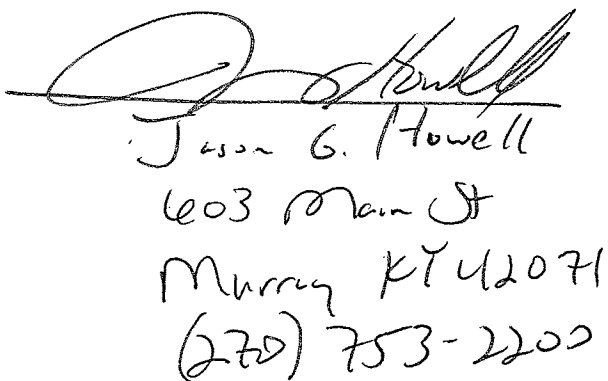 Howell
Jason G. Howell
603 Main St
Murray KY 42071
(270) 753-2200